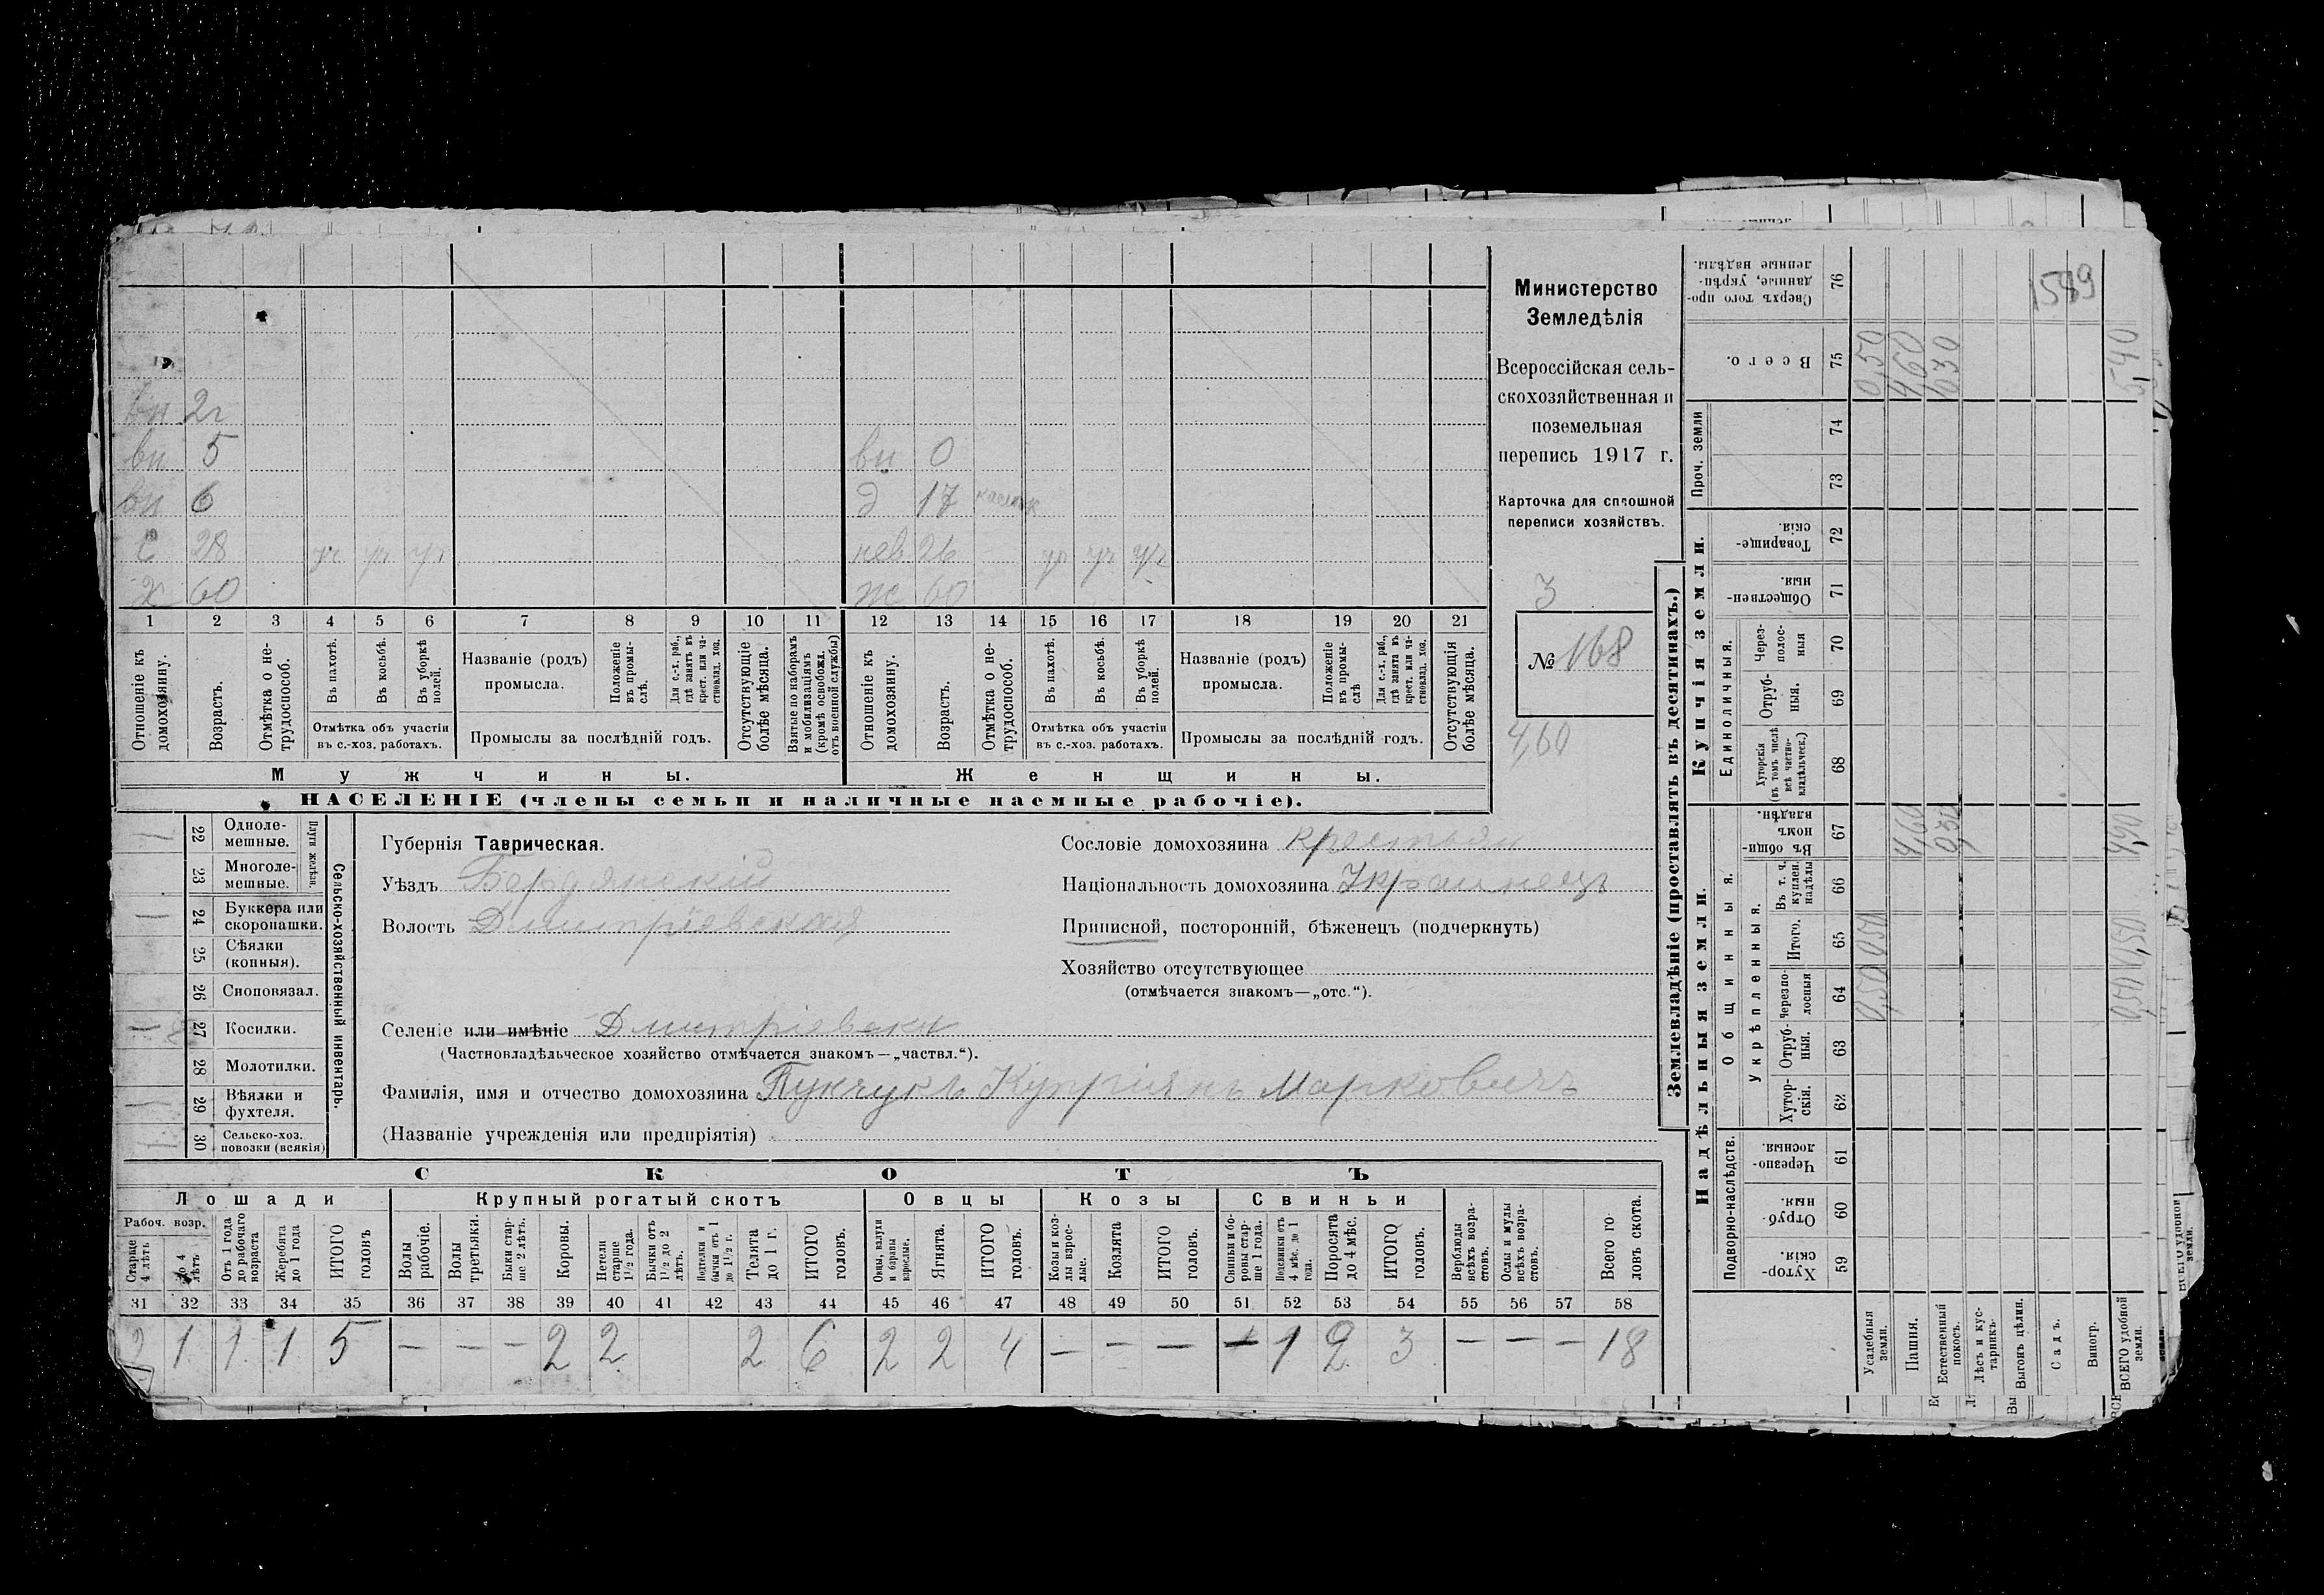 вн 2г
вн 5 вн 0
вн 6 д 17
с 28 уч уч уч нев 26 уч уч уч
х 60 ж 60
1 2 3 4 5 6 7 8 9 10 11 12 13 14 15 16 17 18 19 20 21
Отношеніе къ домохозяину.
Возрастъ.
Отмѣтка о не-
трудоспособ.
Въ пахотѣ.
Въ косьбѣ.
Въ уборкѣ
полей.
Отмѣтка объ участіи
въ с.-хоз. работахъ.
Названіе (родъ)
промысла.
Положеніе
въ промы-
слѣ.
Для с.-х. раб.,
гдѣ занятъ въ
крест. или ча-
стновлад. хоз.
Промыслы за послѣдній годъ.
Отсутствующіе
болѣе мѣсяца.
Взятые по наборамъ
и мобилизаціямъ
(кромѣ освобожд.
отъ военной службы)
Отношеніе къ
домохозяину.
Возрастъ.
Отмѣтка о не-
трудоспособ.
Въ пахотѣ.
Въ косьбѣ.
Въ уборкѣ
полей.
Отмѣтка объ участіи
въ с.-хоз. работахъ.
Названіе (родъ)
промысла.
Положеніе
въ промы-
слѣ
Для с.-х. раб.,
гдѣ занята въ
крест. или ча-
стновлад. хоз.
Промыслы за послѣдній годъ.
Отсутствующія
болѣе мѣсяца.
Мужчины.
Женщины.
НАСЕЛЕНІЕ (члены семьи и наличные наемные рабочіе).
Министерство
Земледѣлія
Всероссійская сель-
скохозяйственная и
поземельная
перепись 1917 г.
Карточка для сплошной
переписи хозяйствъ.
3
№ 168
4,60
22 Одноле-
мешные.
23 Многоле-
мешные.
Плуги желѣзн.
24 Буккера или
скоропашки.
25 Сѣялки
(конныя).
26 Сноповязал.
27 Косилки.
28 Молотилки.
29 Вѣялки и
фухтеля.
30 Сельско-хоз.
повозки (всякія)
Сельско-хозяйственный инвентарь.
Губернія Таврическая.
Уѣздъ Бердянскій
Волость Дмитріевская
Сословіе домохозяина крестьян
Національность домохозяина Украинецъ
Приписной, посторонній, бѣженецъ (подчеркнуть)
Хозяйство отсутствующее
(отмѣчается знакомъ—„отс.“).
Селеніе или имѣніе Дмитріевски
(Частновладѣльческое хозяйство отмѣчается знакомъ—„частвл.“).
Фамилія, имя и отчество домохозяина Пунчукъ Купріянъ Марковичъ
(Названіе учрежденія или предпріятія)
СКОТЪ
Лошади
Крупный рогатый скотъ
Овцы
Козы
Свиньи
Рабоч. возр.
Старше
4 лѣтъ
До 4
лѣтъ
Отъ 1 года
до рабочаго
возраста
Жеребята
до 1 года
ИТОГО
головъ
Волы
рабочіе.
Волы
третьяки.
Быки стар-
ше 2 лѣтъ.
Коровы.
Нетели
старше
1½ года.
Бычки отъ
1½ до 2
лѣтъ.
Подтелки и
бычки отъ 1
до 1½ г.
Телята
до 1 г.
ИТОГО
головъ.
Овцы, валухи
и бараны
взрослые.
Ягнята.
ИТОГО
головъ.
Козы и коз-
лы взрос-
лые.
Козлята
ИТОГО
головъ.
Свиньи и бо-
ровы стар-
ше 1 года.
Подсвинки отъ
4 мѣс. до 1
года.
Поросята
до 4 мѣс.
ИТОГО
головъ.
Верблюды
всѣхъ возра-
стовъ.
Ослы и мулы
всѣхъ возра-
стовъ.
Всего го-
ловъ скота.
31 32 33 34 35 36 37 38 39 40 41 42 43 44 45 46 47 48 49 50 51 52 53 54 55 56 57 58
2 1 1 1 5 — — — 2 2 2 6 2 2 4 — — — 1 2 3 — — — 18
Землевладѣніе (проставлять въ десятинахъ.)
Надѣльныя земли.
Купчія земли.
Проч. земли
Подворно-наслѣдств.
Общинныя.
Укрѣпленныя.
Единоличныя.
Хутор-
скія. 59
Отруб-
ныя. 60
Черезпо-
лосныя. 61
Хутор-
скія. 62
Отруб-
ныя. 63
Черезпо-
лосныя 64
Итого. 65
Въ т. ч.
куплен.
надѣлы 66
Въ общи-
номъ
владѣн. 67
Хуторскія
(въ томъ числѣ
всѣ частно-
владѣльческ.) 68
Отруб-
ныя. 69
Черес-
полос-
ныя 70
Обществен-
ныя. 71
Товарище-
скія. 72
73
74
Всего. 75
Сверхъ того про-
данные, укрѣп-
ленные надѣлы. 76
Усадебныя
земли. 0,50 0,50 0,50
Пашня. 4,60 4,60
Естественный
покосъ. 0,30 0,30
Лѣсъ и кус-
тарникъ.
Выгонъ цѣлин.
Садъ.
Виногр.
ВСЕГО удобной
земли. 0,50 0,50 4,90 5,40
1589